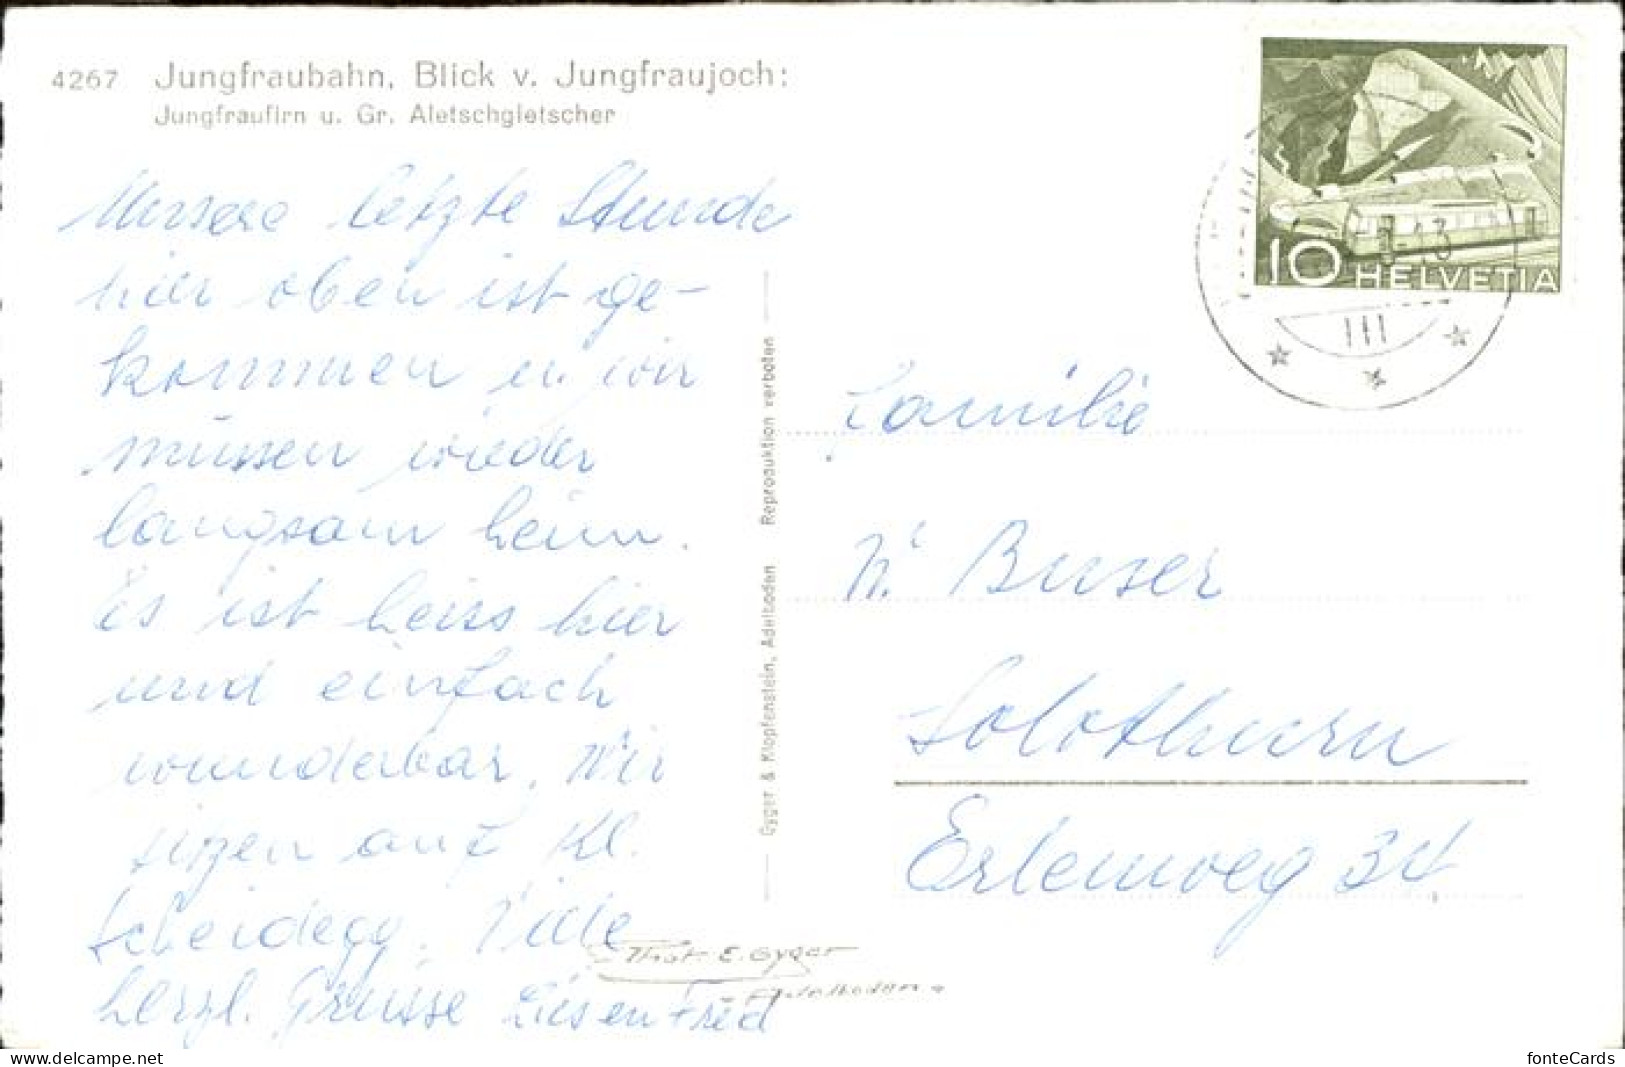 4267 Jungfraubahn, Blick v. Jungfraujoch:
Jungfraufirn u. Gr. Aletschgletscher
Unsere letzte Stunde
hier oben ist ge-
kommen u. wir
müssen wieder
langsam heim.
Es ist heiss hier
und einfach
wunderbar. Wir
sitzen auf Kl.
Scheidegg. Viele
herzl. Grüsse Lis en Fred
Gyger & Klopfenstein, Adelboden Reproduktion verboten
Phot E. Gyger
Adelboden
10 HELVETIA
III
Familie
W. Buser
Solothurn
Erlenweg 34
fonteCards
www.delcampe.net